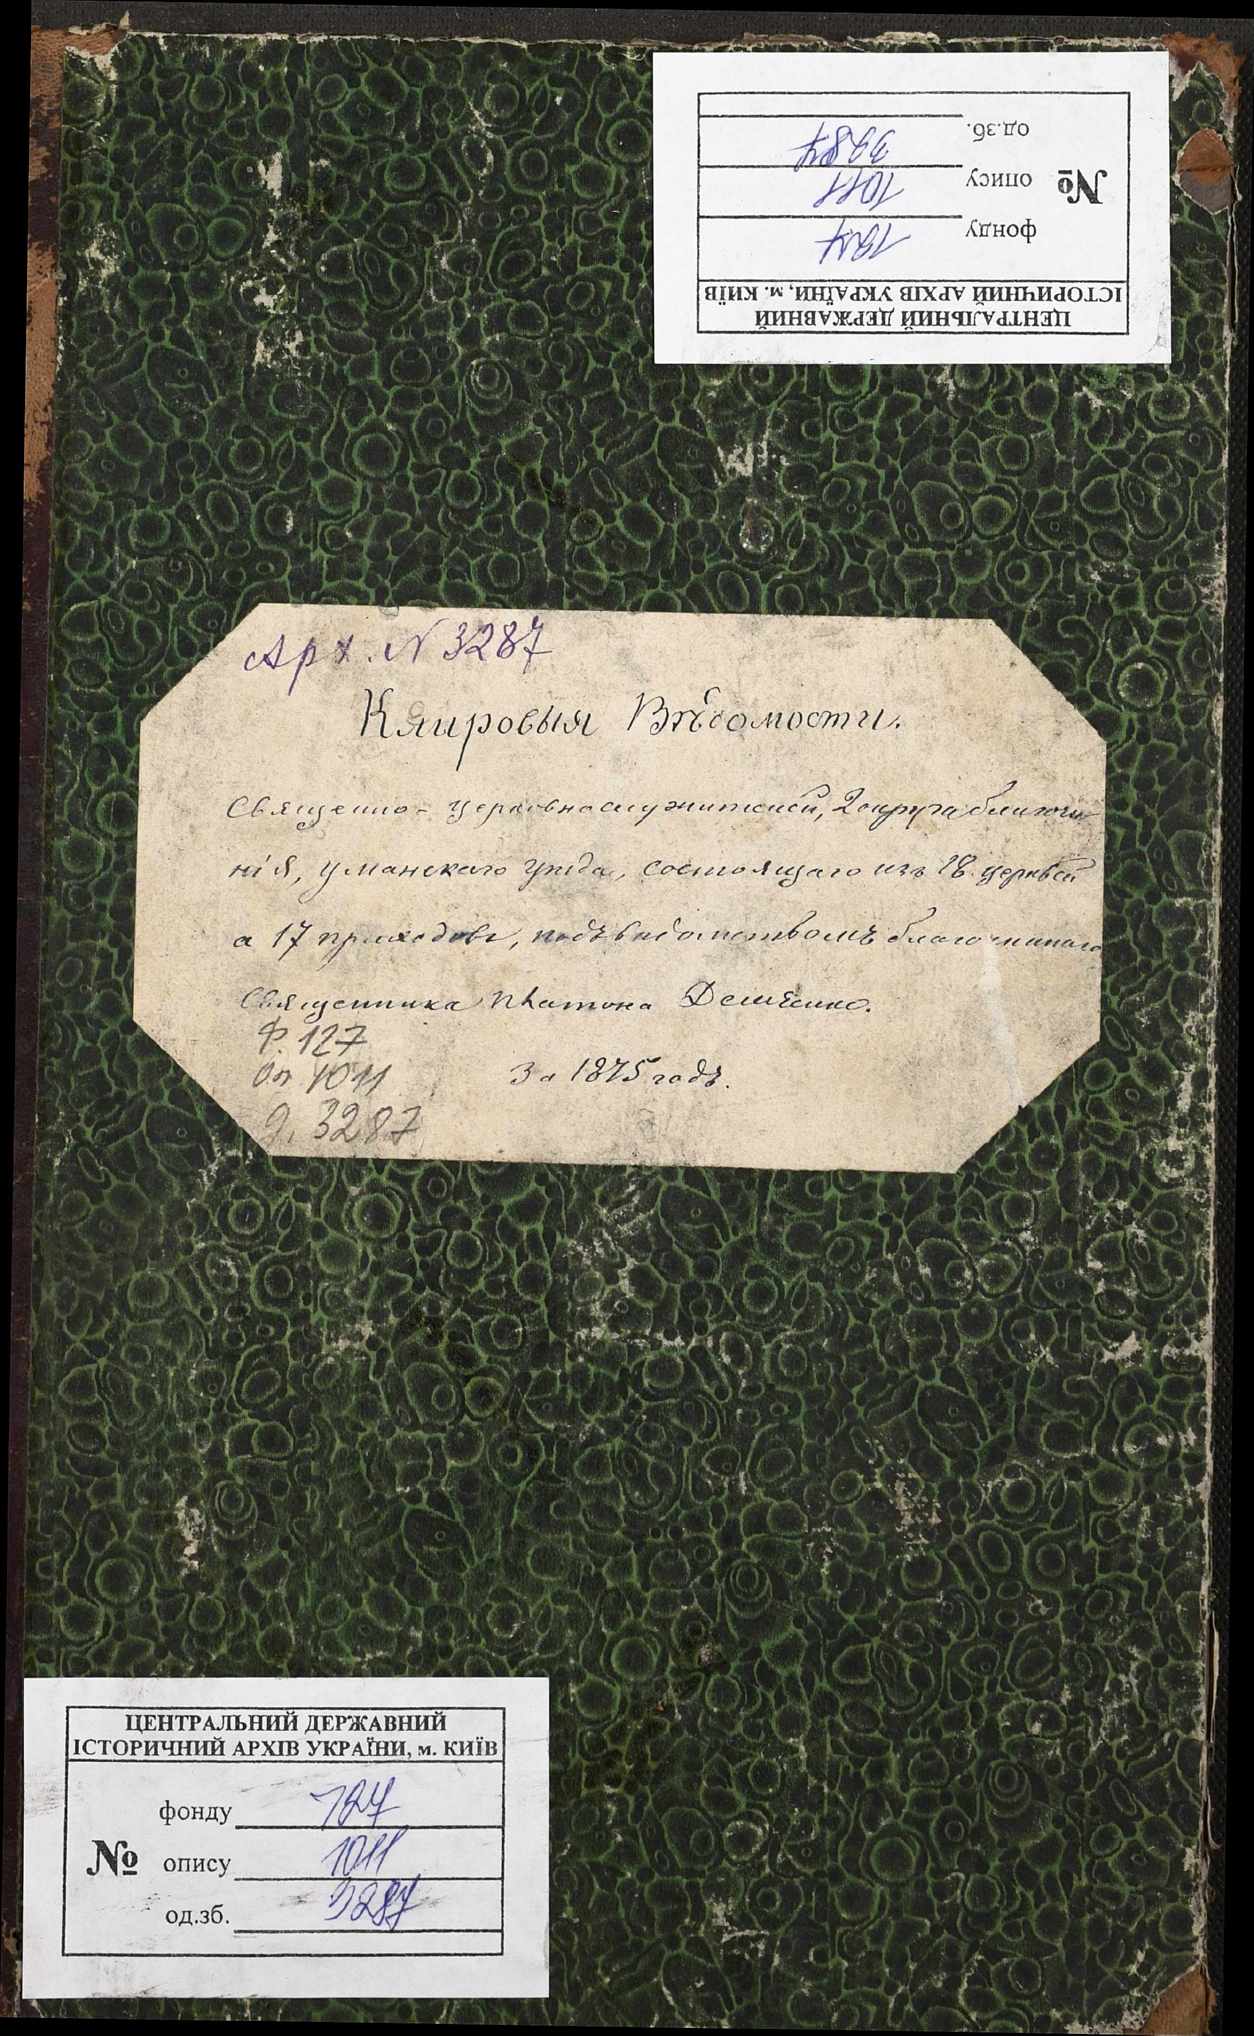 ЦЕНТРАЛЬНИЙ ДЕРЖАВНИЙ
ІСТОРИЧНИЙ АРХІВ УКРАЇНИ, м. КИЇВ
№
фонду 127
опису 1011
од.зб. 3287
Арх. N 3287
Клировыя Вѣдомости.
Священно-церковнослужителей, 2 округа благочи
нія, уманскаго уѣзда, состоящаго изъ 18 церквей
а 17 приходовъ, подъ вѣдомствомъ благочиннаго
Священника Платона
За 1875 годъ.
Ф. 127
Оп 1011
д. 3287
ЦЕНТРАЛЬНИЙ ДЕРЖАВНИЙ
ІСТОРИЧНИЙ АРХІВ УКРАЇНИ, м. КИЇВ
№
фонду 127
опису 1011
од.зб. 3287